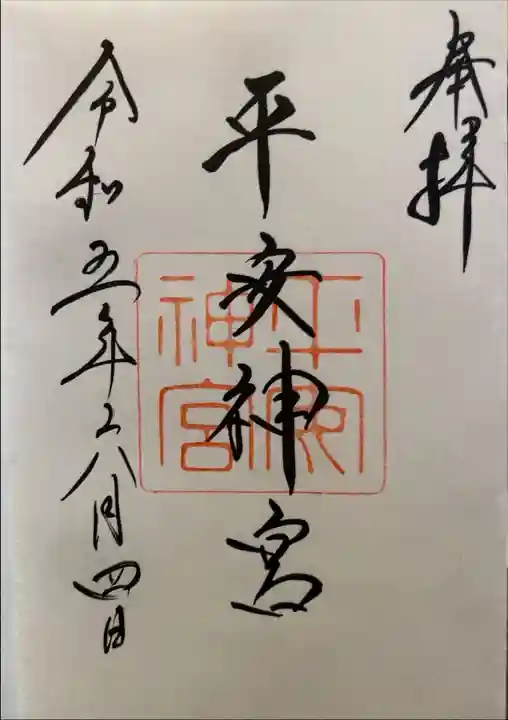 奉拝
平安神宮
平安
神宮
令和五年六月四日